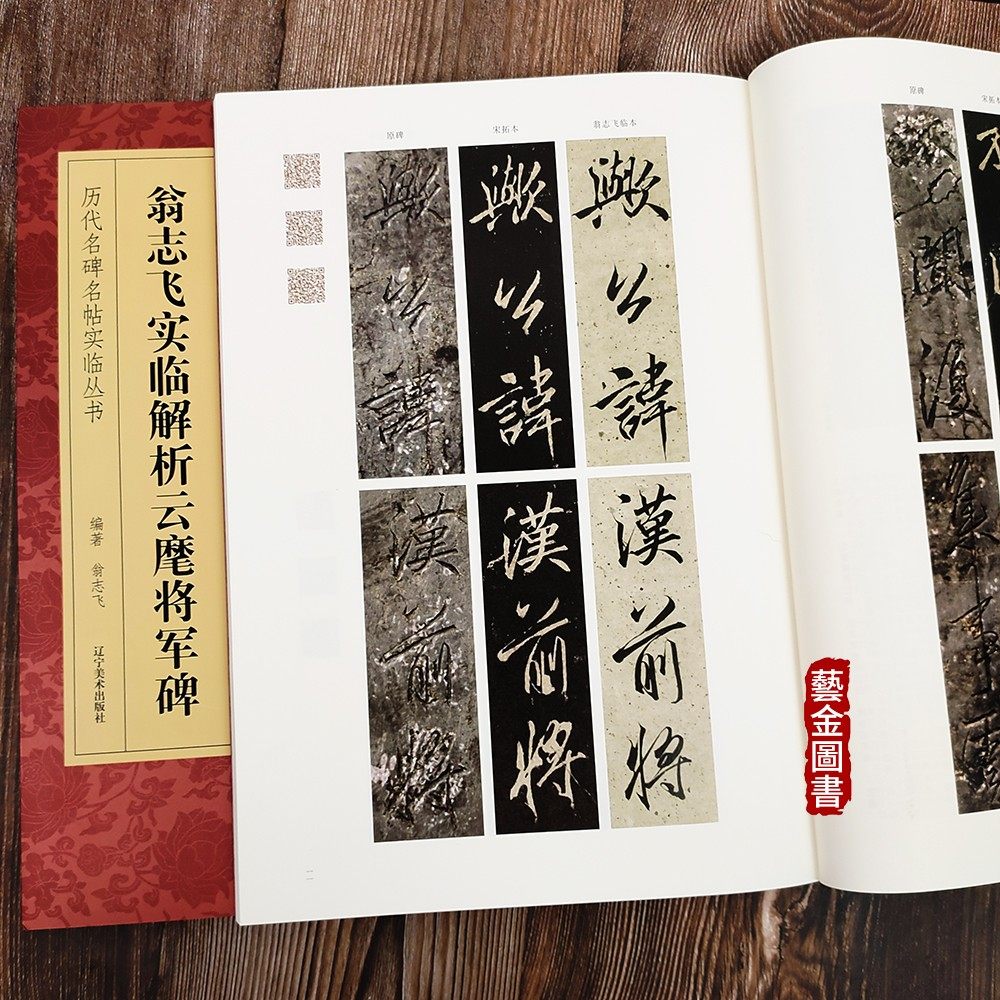 历代名碑名帖实临丛书
翁志飞实临解析云麾将军碑
编著 翁志飞
辽宁美术出版社
原碑
宋拓本
翁志飞临本
歟公諱
歟公諱
歟公諱
漢前將
漢前將
漢前將
二
原碑
宋拓本
藝金圖書